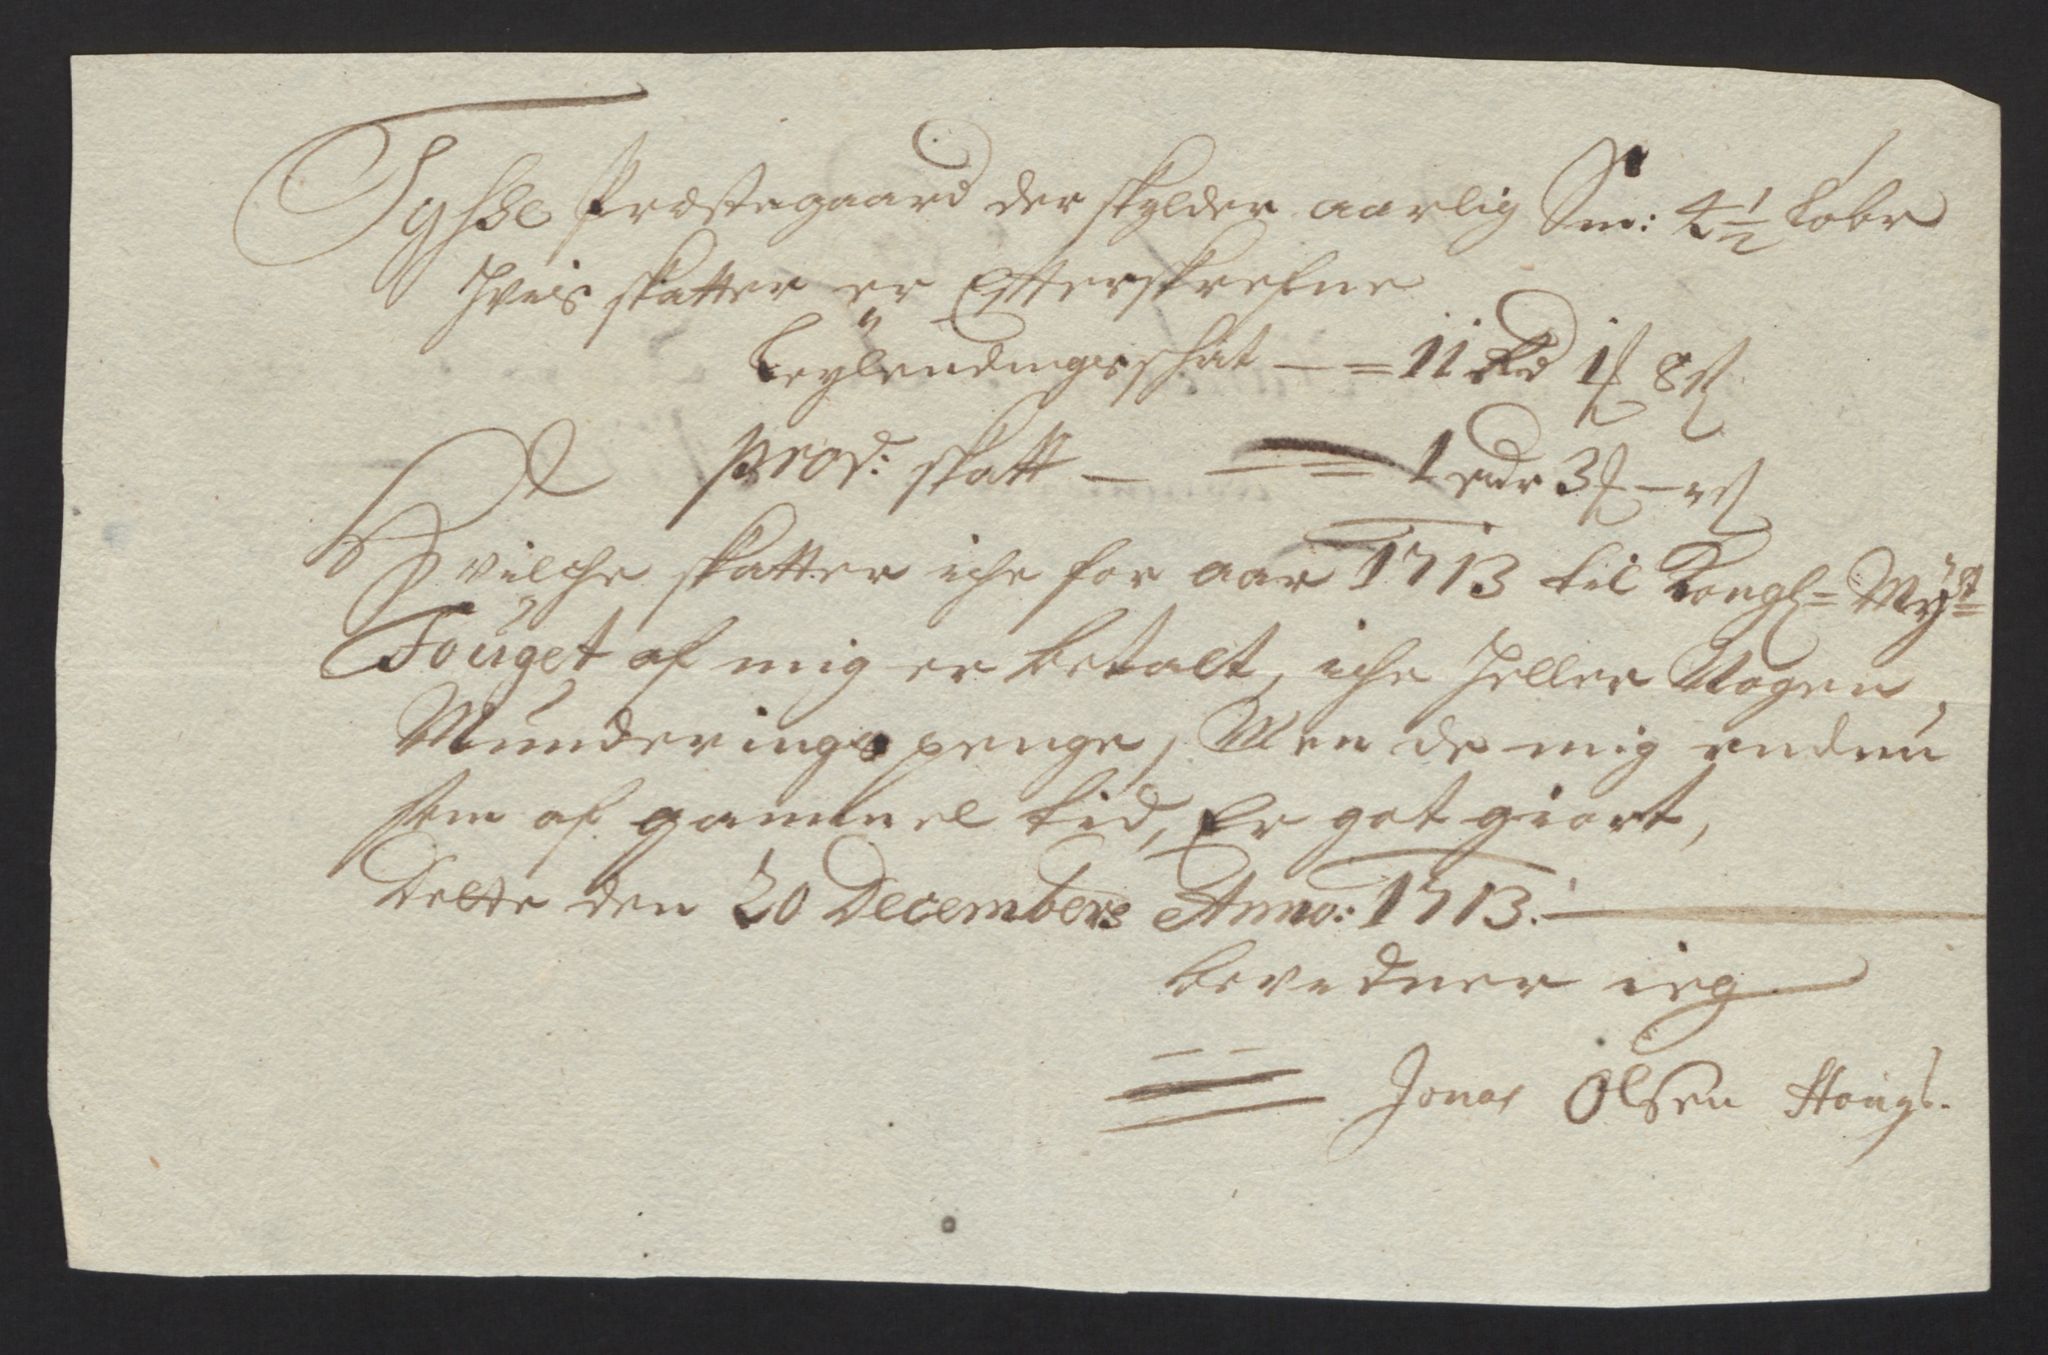 Tysse Præstegaard der skylder aarlig Sm: 4½ Løber
Hvis skatter er Efterskrefne
Leylendingsschat — = 11 Rd 1 ƒ 8 ß
Prov: skatt — — = 1 Rdr 3 ƒ — ß
Hvilche skatter iche for aar 1713 til Kongl= Mÿst=
Foüget af mig er betalt, iche heller Nogen
Munderings penge, Men de mig endnu
som af gammel tid, Er got giort,
dette den 20 Decembers Anno: 1713:
bevidner ieg
Jonas Olsen